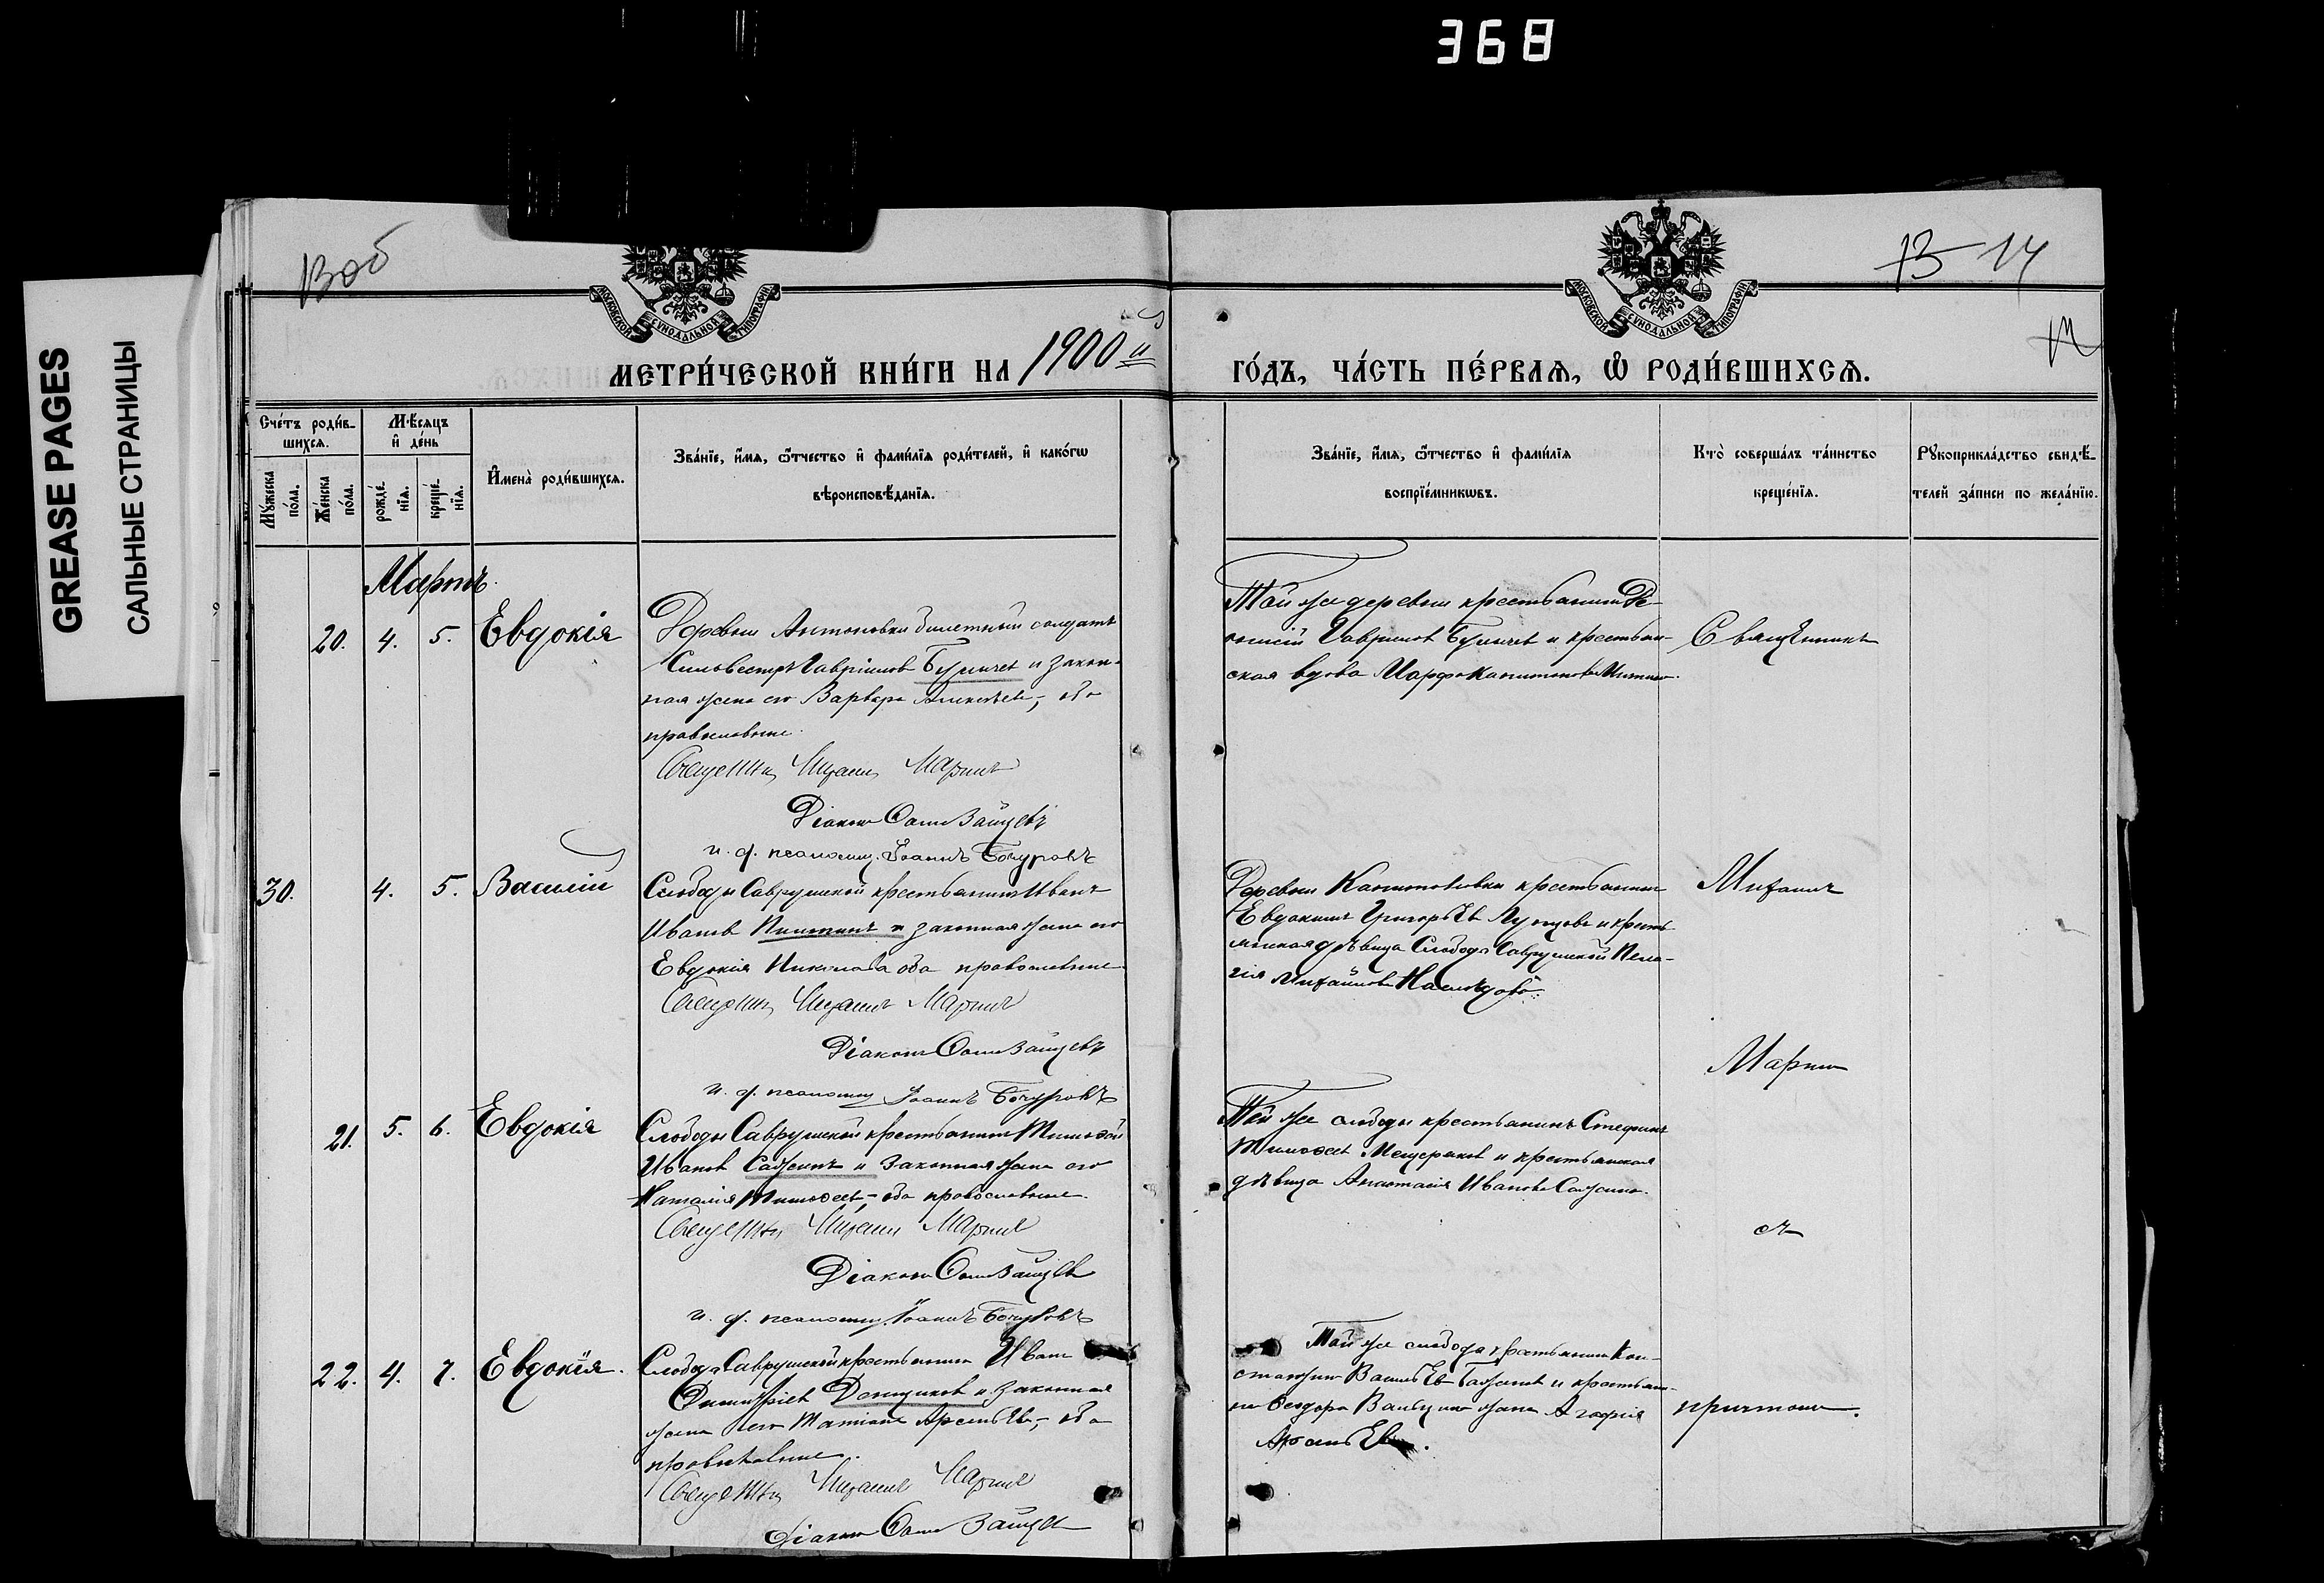 368
GREASE PAGES
САЛЬНЫЕ СТРАНИЦЫ
13об
13 14
МОСКОВСКОЙ СѴНОДАЛЬНОЙ ТИПОГРАФІИ
МОСКОВСКОЙ СѴНОДАЛЬНОЙ ТИПОГРАФІИ
МЕТРИ́ЧЕСКОЙ КНИ́ГИ НА 1900й
ГО́ДЪ, ЧА́СТЬ ПЕ́РВАѦ, Ѡ҆ РОДИ́ВШИХСѦ.
Сче́тъ роди́в-
шихсѧ.
Мꙋ́жеска
по́ла.
Же́нска
по́ла.
Мѣ́сѧцъ
и҆ де́нь
рожде́-
нїѧ.
креще́-
нїѧ.
И҆мена̀ роди́вшихсѧ.
Зва́нїе, и҆́мѧ, ѻ҆́тчество и҆ фами́лїѧ роди́телей, и҆ како́гѡ
вѣроисповѣ́данїѧ.
Зва́нїе, и҆́мѧ, ѻ҆́тчество и҆ фами́лїѧ
воспрїе́мникѡвъ.
Кто̀ соверша́лъ та́инство
креще́нїѧ.
Рꙋкоприкла́дство свидѣ́-
телей за́писи по жела́нїю.
Мартъ.
20. 4. 5. Евдокія
Деревни Антоновки билетный солдатъ
Сильвестръ Гавріиловъ и закон-
ная жена его Варвара Алексѣева, оба
православные.
Священникъ Михаилъ Маринъ
Діаконъ Зайцевъ
и. д. псаломщ. Іоаннъ Бочуровъ
Той же деревни крестьянинъ
Гавриловъ и крестьян-
ская вдова Марфа Капитонова
Священникъ
30. 4. 5. Василій
Слободы Саврушской крестьянинъ Иванъ
Ивановъ и законная жена его
Евдокія Николаева оба православные
Священникъ Михаилъ Маринъ
Діаконъ Зайцевъ
и. д. псаломщ. Іоаннъ Бочуровъ
Деревни крестьянинъ
Евдокимъ Григорьевъ и кресть-
янская дѣвица Слободы Саврушской Пела-
гія Михайлова Наслѣдова.
Михаилъ
Маринъ
21. 5. 6. Евдокія
Слободы Саврушской крестьянинъ Тимоѳей
Ивановъ Сажинъ и законная жена его
Наталія Тимоѳеева, оба православные.
Священникъ Михаилъ Маринъ
Діаконъ Зайцевъ
и. д. псаломщ. Іоаннъ Бочуровъ
Той же слободы крестьянинъ Стефанъ
Тимоѳеевъ Мещеряковъ и крестьянская
дѣвица Анастасія Иванова Сажина.
съ
22. 4. 7. Евдокія.
Слободы Саврушской крестьянинъ Иванъ
Димитріевъ Денщиковъ и законная
жена его Татіана Арсеньева, оба
православные.
Священникъ Михаилъ Маринъ
Діаконъ Зайцевъ
Той же слободы крестьянинъ Кон-
стантинъ Васильевъ и крестьян-
ина Ѳеодора жена Агафія
Арсеньева.
причтомъ.